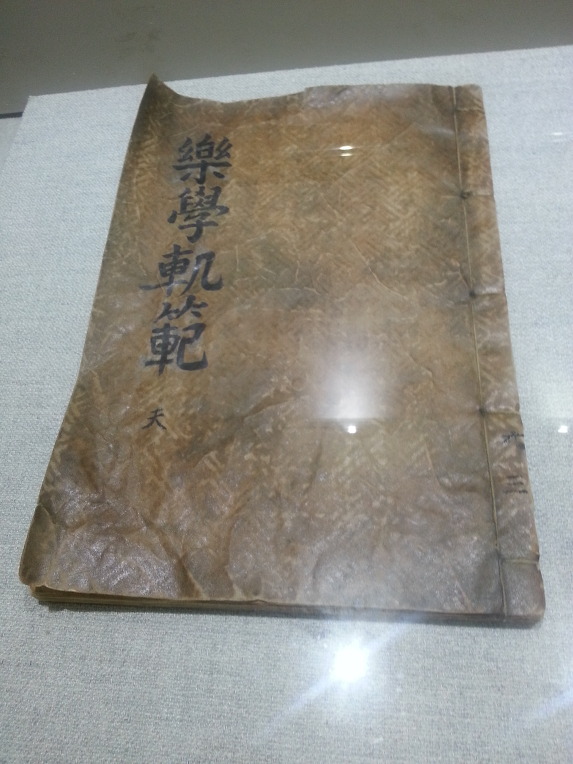 樂學軌範
天
共三